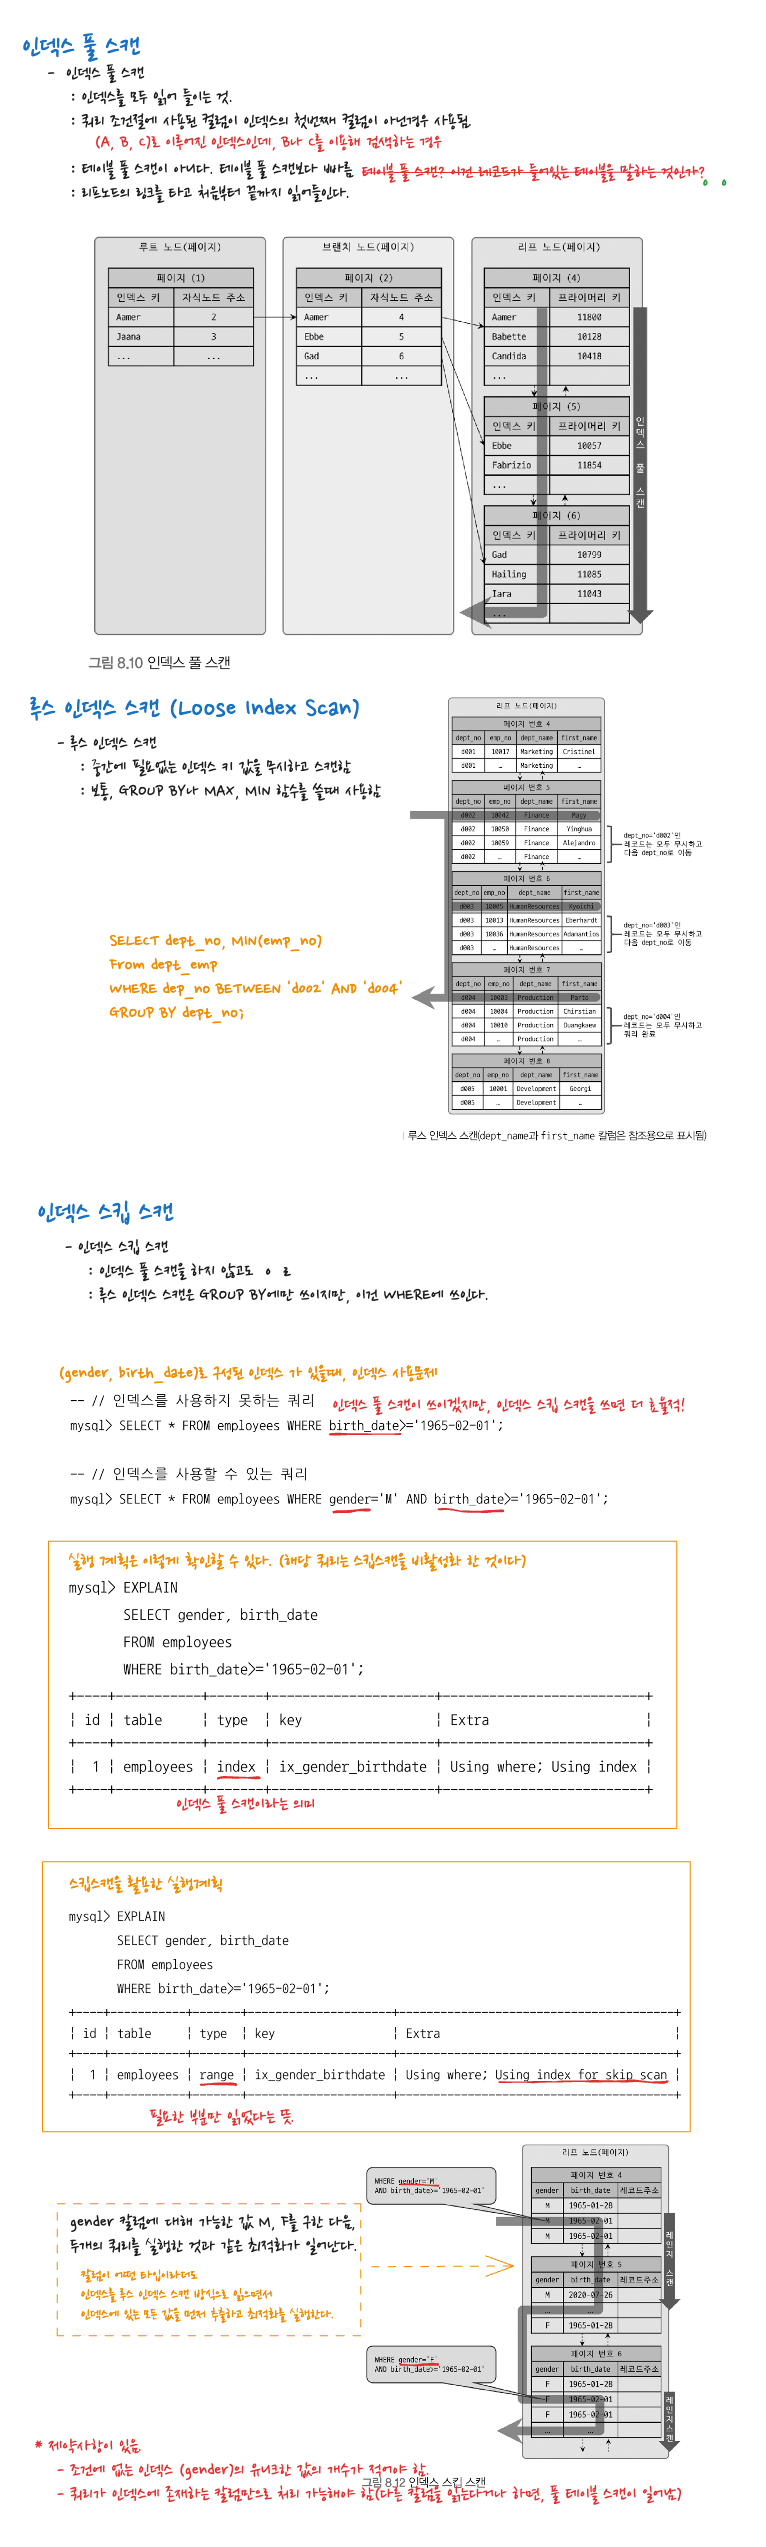 인덱스 풀 스캔
- 인덱스 풀 스캔
: 인덱스를 모두 읽어 들이는 것.
: 쿼리 조건절에 사용된 컬럼이 인덱스의 첫번째 컬럼이 아닌경우 사용됨
(A, B, C)로 이루어진 인덱스인데, B나 C를 이용해 검색하는 경우
: 테이블 풀 스캔이 아니다. 테이블 풀 스캔보다 빠름 테이블 풀 스캔? 이건 레코드가 들어있는 테이블을 말하는 것인가? ㅇㅇ
: 리프노드의 링크를 타고 처음부터 끝까지 읽어들인다.
루트 노드(페이지)
페이지 (1)
인덱스 키 자식노드 주소
Aamer 2
Jaana 3
... ...
브랜치 노드(페이지)
페이지 (2)
인덱스 키 자식노드 주소
Aamer 4
Ebbe 5
Gad 6
... ...
리프 노드(페이지)
페이지 (4)
인덱스 키 프라이머리 키
Aamer 11800
Babette 10128
Candida 10418
...
페이지 (5)
인덱스 키 프라이머리 키
Ebbe 10057
Fabrizio 11854
...
페이지 (6)
인덱스 키 프라이머리 키
Gad 10799
Hailing 11085
Iara 11043
...
인덱스 풀 스캔
그림 8.10 인덱스 풀 스캔
루스 인덱스 스캔 (Loose Index Scan)
- 루스 인덱스 스캔
: 중간에 필요없는 인덱스 키 값을 무시하고 스캔함
: 보통, GROUP BY나 MAX, MIN 함수를 쓸때 사용함
SELECT dept_no, MIN(emp_no)
From dept_emp
WHERE dep_no BETWEEN 'd002' AND 'd004'
GROUP BY dept_no;
리프 노드(페이지)
페이지 번호 4
dept_no emp_no dept_name first_name
d001 10017 Marketing Cristinel
d001 … Marketing …
페이지 번호 5
dept_no emp_no dept_name first_name
d002 10042 Finance Magy
d002 10050 Finance Yinghua
d002 10059 Finance Alejandro
d002 … Finance …
dept_no='d002'인
레코드는 모두 무시하고
다음 dept_no로 이동
페이지 번호 6
dept_no emp_no dept_name first_name
d003 10005 HumanResources Kyoichi
d003 10013 HumanResources Eberhardt
d003 10036 HumanResources Adamantios
d003 … HumanResources …
dept_no='d003'인
레코드는 모두 무시하고
다음 dept_no로 이동
페이지 번호 7
dept_no emp_no dept_name first_name
d004 10003 Production Parto
d004 10004 Production Chirstian
d004 10010 Production Duangkaew
d004 … Production …
dept_no='d004'인
레코드는 모두 무시하고
쿼리 완료
페이지 번호 8
dept_no emp_no dept_name first_name
d005 10001 Development Georgi
d005 … Development …
루스 인덱스 스캔(dept_name과 first_name 칼럼은 참조용으로 표시됨)
인덱스 스킵 스캔
- 인덱스 스킵 스캔
: 인덱스 풀 스캔을 하지 않고도 ㅇ ㄹ
: 루스 인덱스 스캔은 GROUP BY에만 쓰이지만, 이건 WHERE에 쓰인다.
(gender, birth_date)로 구성된 인덱스 가 있을때, 인덱스 사용문제
-- // 인덱스를 사용하지 못하는 쿼리 인덱스 풀 스캔이 쓰이겠지만, 인덱스 스킵 스캔을 쓰면 더 효율적!
mysql> SELECT * FROM employees WHERE birth_date>='1965-02-01';
-- // 인덱스를 사용할 수 있는 쿼리
mysql> SELECT * FROM employees WHERE gender='M' AND birth_date>='1965-02-01';
실행 계획은 이렇게 확인할 수 있다. (해당 쿼리는 스킵스캔을 비활성화 한 것이다)
mysql> EXPLAIN
SELECT gender, birth_date
FROM employees
WHERE birth_date>='1965-02-01';
+----+-----------+-------+---------------------+--------------------------+
| id | table | type | key | Extra |
+----+-----------+-------+---------------------+--------------------------+
| 1 | employees | index | ix_gender_birthdate | Using where; Using index |
+----+-----------+-------+---------------------+--------------------------+
인덱스 풀 스캔이라는 의미
스킵스캔을 활용한 실행계획
mysql> EXPLAIN
SELECT gender, birth_date
FROM employees
WHERE birth_date>='1965-02-01';
+----+-----------+-------+---------------------+----------------------------------------+
| id | table | type | key | Extra |
+----+-----------+-------+---------------------+----------------------------------------+
| 1 | employees | range | ix_gender_birthdate | Using where; Using index for skip scan |
+----+-----------+-------+---------------------+----------------------------------------+
필요한 부분만 읽었다는 뜻.
gender 칼럼에 대해 가능한 값 M, F를 구한 다음,
두개의 쿼리를 실행한 것과 같은 최적화가 일어난다.
칼럼이 어떤 타입이라더도
인덱스를 루스 인덱스 스캔 방식으로 읽으면서
인덱스에 있는 모든 값을 먼저 추출하고 최적화를 실행한다.
WHERE gender='M'
AND birth_date>='1965-02-01'
WHERE gender='F'
AND birth_date>='1965-02-01'
리프 노드(페이지)
페이지 번호 4
gender birth_date 레코드주소
M 1965-01-28
M 1965-02-01
M 1965-02-01
페이지 번호 5
gender birth_date 레코드주소
M 2020-07-26
... ...
F 1965-01-28
페이지 번호 6
gender birth_date 레코드주소
F 1965-01-28
F 1965-02-01
F 1965-02-01
... ...
레인지 스캔
레인지 스캔
그림 8.12 인덱스 스킵 스캔
* 제약사항이 있음.
- 조건에 없는 인덱스 (gender)의 유니크한 값의 개수가 적어야 함.
- 쿼리가 인덱스에 존재하는 칼럼만으로 처리 가능해야 함(다른 칼럼을 읽는다거나 하면, 풀 테이블 스캔이 일어남)